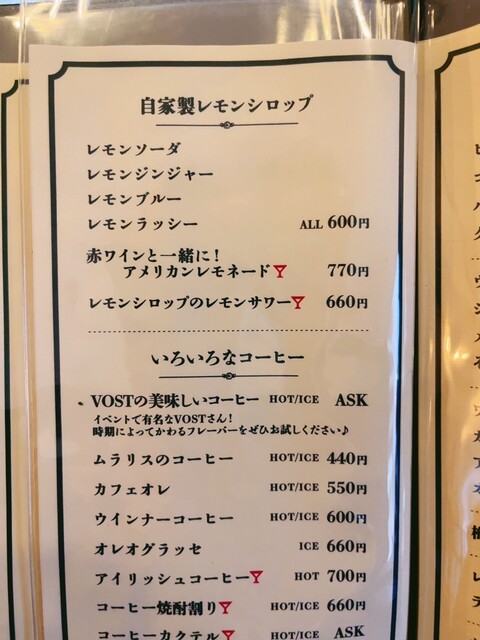 自家製レモンシロップ
レモンソーダ
レモンジンジャー
レモンブルー
レモンラッシー ALL 600円
赤ワインと一緒に!
アメリカンレモネード 770円
レモンシロップのレモンサワー 660円
いろいろなコーヒー
VOSTの美味しいコーヒー HOT/ICE ASK
イベントで有名なVOSTさん!
時期によってかわるフレーバーをぜひお試しください♪
ムラリスのコーヒー HOT/ICE 440円
カフェオレ HOT/ICE 550円
ウインナーコーヒー HOT/ICE 600円
オレオグラッセ ICE 660円
アイリッシュコーヒー HOT 700円
コーヒー焼酎割り HOT/ICE 660円
コーヒーカクテル HOT/ICE ASK